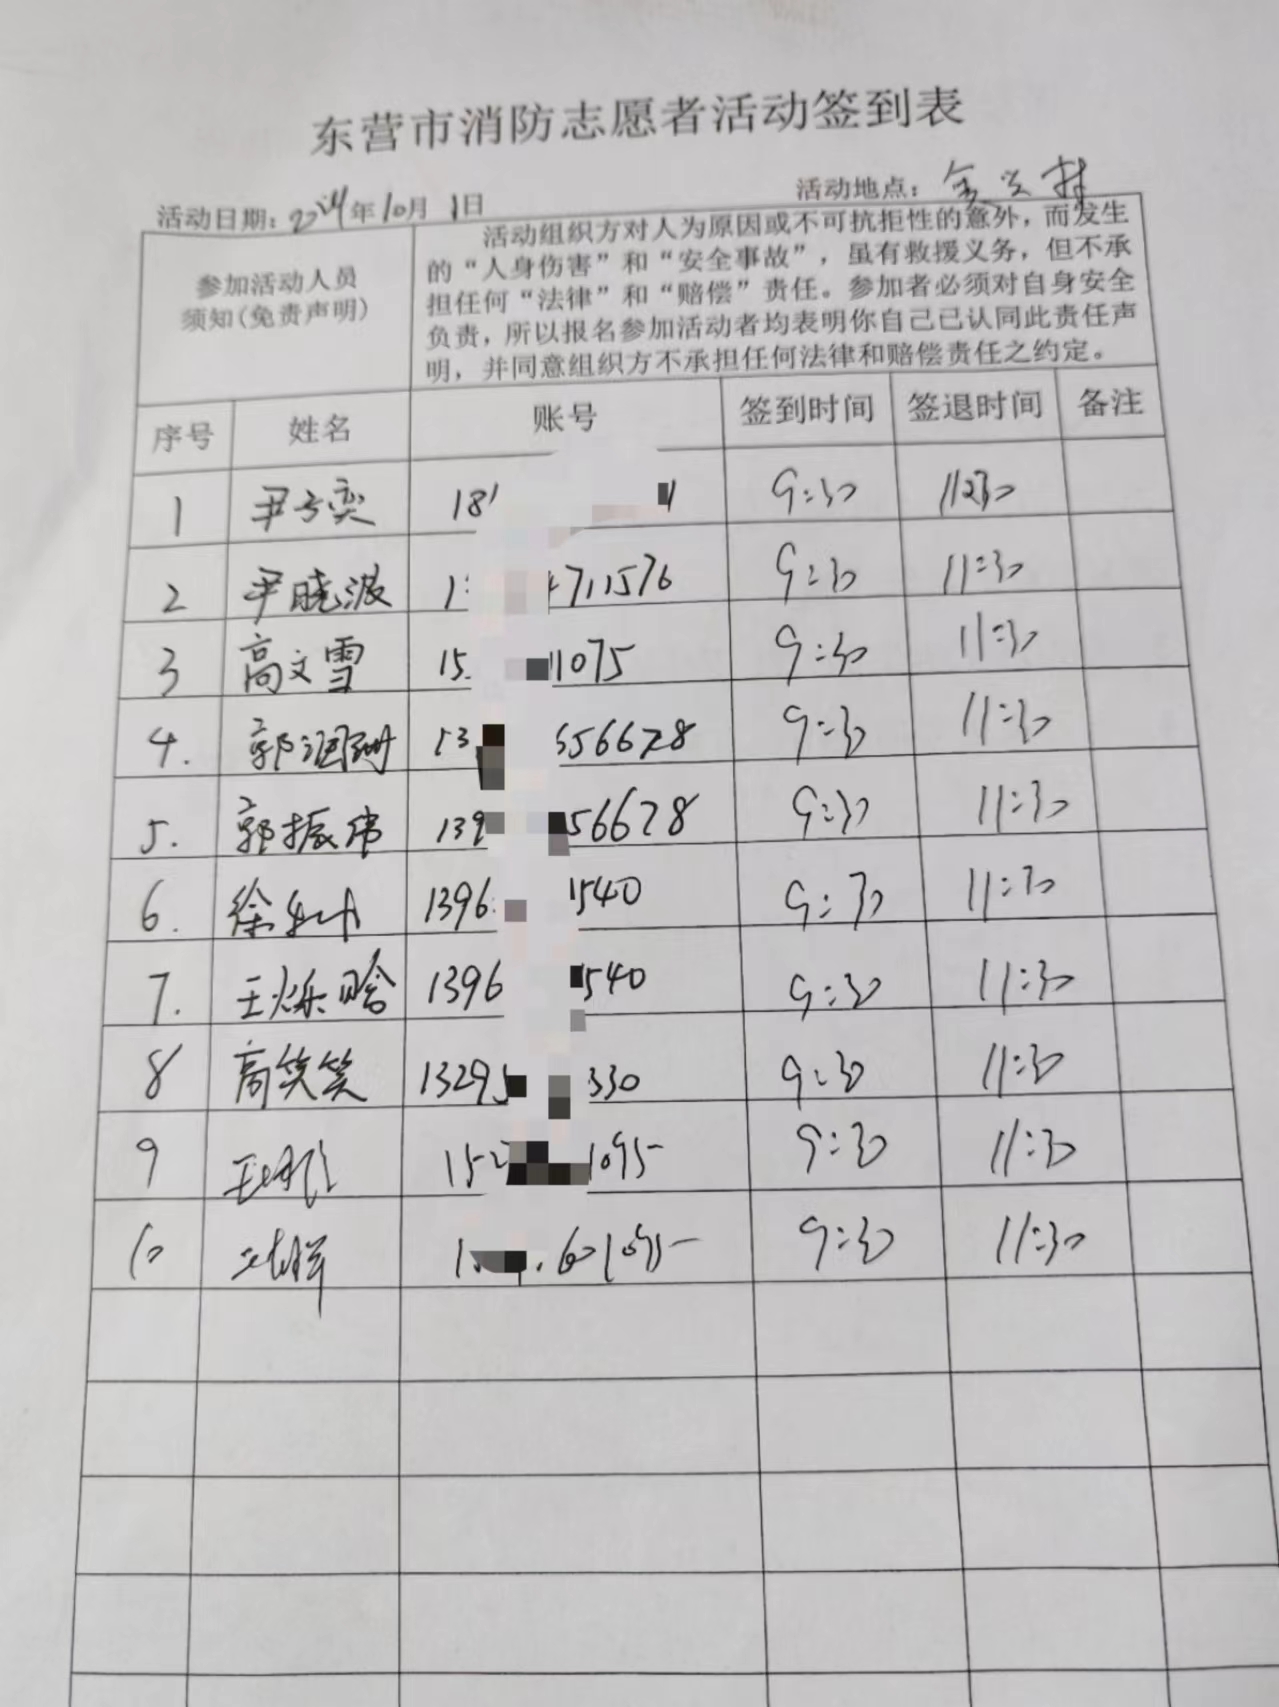 东营市消防志愿者活动签到表
活动日期：2024年10月1日 活动地点：金兴村
参加活动人员
须知（免责声明）
活动组织方对人为原因或不可抗拒性的意外，而发生
的“人身伤害”和“安全事故”，虽有救援义务，但不承
担任何“法律”和“赔偿”责任。参加者必须对自身安全
负责，所以报名参加活动者均表明你自己已认同此责任声
明，并同意组织方不承担任何法律和赔偿责任之约定。
序号 姓名 账号 签到时间 签退时间 备注
1 尹子奕 181 1 9:30 11:30
2 尹晓波 1 4711576 9:30 11:30
3 高文雪 15 11075 9:30 11:30
4. 郭润 13 556678 9:30 11:30
5. 郭振伟 139 56678 9:30 11:30
6. 徐 1396 1540 9:30 11:30
7. 王烁晗 1396 540 9:30 11:30
8 高笑笑 13295 330 9:30 11:30
9 152 1095 9:30 11:30
10 1 601095 9:30 11:30